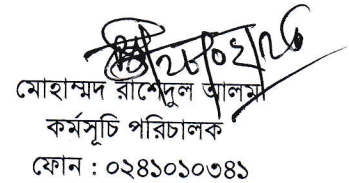 ২৮/০২/২৮
মোহাম্মদ রাশেদুল আলম
কর্মসূচি পরিচালক
ফোন : ০২৪১০১০৩৪১